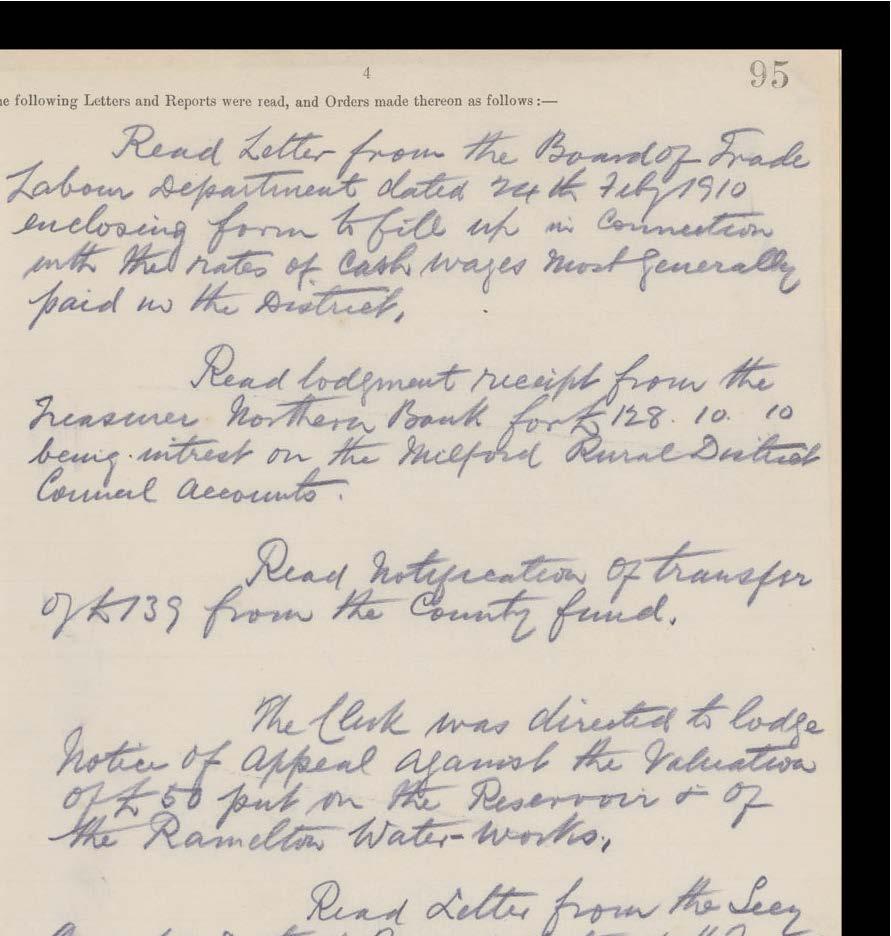 4
95
e following Letters and Reports were read, and Orders made thereon as follows :—
Read Letter from the Board of Trade
Labour Department dated 24th Feby 1910
enclosing form to fill up in Connection
with the rates of Cash wages most generally
paid in the District.
Read lodgment receipt from the
Treasurer Northern Bank for £128. 10. 10
being intrest on the Milford Rural District
Council Accounts.
Read Notification of transfer
of £139 from the County fund.
The Clerk was directed to lodge
Notice of Appeal against the Valuation
of £50 put on the Reservoir & of
the Ramelton Water-works.
Read Letter from the Secy